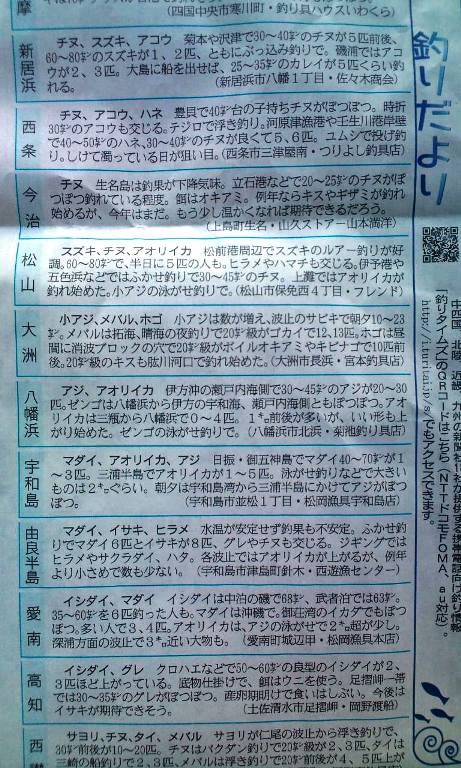 釣りだより
摩
(四国中央市寒川町・釣り具ハウスいわくら)
新居浜
チヌ、スズキ、アコウ 菊本や沢津で30〜40㌢のチヌが5匹前後、
60〜80㌢のスズキが1、2匹、ともにぶっ込み釣りで。磯浦ではアコ
ウが2、3匹。大島に船を出せば、25〜35㌢のカレイが5匹くらい釣
れる。 (新居浜市八幡1丁目・佐々木商会)
西条
チヌ、アコウ、ハネ 豊貝で40㌢台の子持ちチヌがぽつぽつ。時折
30㌢のアコウも交じる。テジロで浮き釣り。河原津漁港や壬生川港岸壁
で40〜50㌢のハネ、30〜40㌢のチヌが良くて5、6匹。ユムシで投げ釣
り。しけて濁っている日が狙い目。(西条市三津屋南・つりよし釣具店)
今治
チヌ 生名島は釣果が下降気味。立石港などで20〜25㌢のチヌがぽ
つぽつ釣れている程度。餌はオキアミ。例年ならキスやギザミが釣れ
始めるが、今年はまだ。もう少し温かくなれば期待できるだろう。
(上島町生名・山久ストアー山本満洋)
松山
スズキ、チヌ、アオリイカ 松前港周辺でスズキのルアー釣りが好
調。60〜80㌢で、半日に5匹の人も。ヒラメやハマチも交じる。伊予港や
五色浜などではふかせ釣りで30〜45㌢のチヌ。上灘ではアオリイカが
釣れ始めた。小アジの泳がせ釣りで。(松山市保免西4丁目・フレンド)
大洲
小アジ、メバル、ホゴ 小アジは数が増え、波止のサビキで朝夕10〜23
㌢。メバルは拓海、晴海の夜釣りで20㌢級がゴカイで12、13匹。ホゴは昼
間に消波ブロックの穴で20㌢級がボイルオキアミやキビナゴで10匹前
後。20㌢級のキスも肱川河口で釣れ始めた。(大洲市長浜・宮本釣具店)
八幡浜
アジ、アオリイカ 伊方沖の瀬戸内海側で30〜45㌢のアジが20〜30
匹。ゼンゴは八幡浜から伊方の宇和海、瀬戸内海側ともぽつぽつ。アオ
リイカは三瓶から八幡浜で0〜4匹。1㌔前後が多いが、いい形も上
がり始めた。ゼンゴの泳がせ釣りで。(八幡浜市北浜・菊池釣り具店)
宇和島
マダイ、アオリイカ、アジ 日振・御五神島でマダイ40〜70㌢が1
〜3匹。三浦半島でアオリイカが1〜5匹。泳がせ釣りなどで大きい
ものは2㌔ぐらい。朝夕は宇和島湾から三浦半島にかけてアジがぽつ
ぽつ。 (宇和島市並松1丁目・松岡漁具宇和島店)
由良半島
マダイ、イサキ、ヒラメ 水温が安定せず釣果も不安定。ふかせ釣
りでマダイ6匹とイサキが8匹、グレやチヌも交じる。ジギングでは
ヒラメやサクラダイ、ハタ。各波止ではアオリイカが上がるが、例年
より小さめで数も少ない。(宇和島市津島町針木・西遊漁センター)
愛南
イシダイ、マダイ イシダイは中泊の磯で68㌢、武者泊では63㌢。
35〜60㌢を6匹釣った人も。マダイは沖磯で。御荘湾のイカダでもぽつ
ぽつ。多い人で3、4匹。アオリは、アジの泳がせで2㌔超が少し。
深浦方面の波止で3㌔近い大物も。(愛南町城辺甲・松岡漁具本店)
高知
イシダイ、グレ クロハエなどで50〜60㌢の良型のイシダイが2、
3匹ほど上がっている。底物仕掛けで、餌はウニを使う。足摺岬一帯
では30〜35㌢のグレがぽつぽつ。産卵期明けで食いはしぶい。今後は
イサキが期待できそう。 (土佐清水市足摺岬・岡野渡船)
西讃
サヨリ、チヌ、タイ、メバル サヨリが仁尾の波止から浮き釣りで、
30㌢前後が10〜20匹。チヌはバクダン釣りで20㌢級が2、3匹、タイは
三崎の船釣りで2、3匹、メバルは浮き釣りで20㌢前後が4、5匹上が
中四国、北陸、近畿、九州の新聞社16社が提供する携帯電話向け釣り情報
「釣りタイムズ」のQRコードはこちら(NTTドコモFOMA、au対応)。
http://i.tsuritai.jp/s/でもアクセスできます。